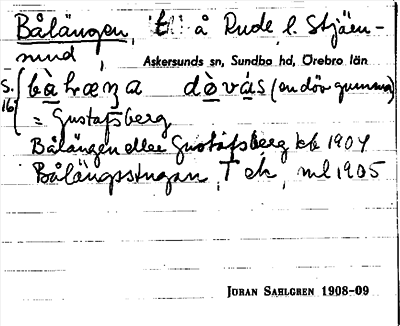 Bålängen, t. å Rude l. Stjärn-
sund, Askersunds sn, Sundbo hd, Örebro län
S. 16 bà læŋa dèvás (en döv gumma)
= Gustafsberg
Bålängen eller Gustafsberg kb 1904
Bålängsstugan, T ek, ml 1905
JÖRAN SAHLGREN 1908-09